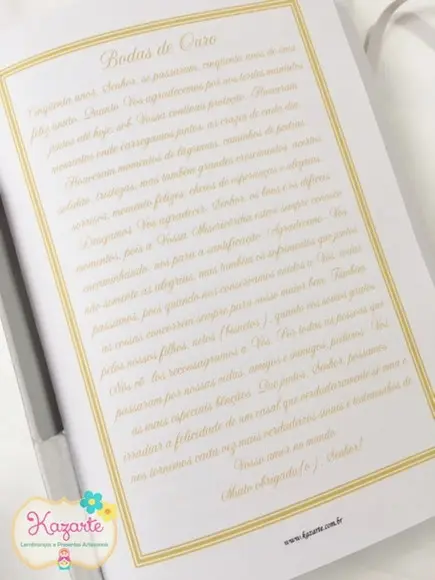 Bodas de Ouro
Cinquenta anos, Senhor, se passaram, cinquenta anos de uma
feliz união. Quanto Vos agradecemos por nos terdes mantidos
juntos até hoje, sob Vossa contínua proteção. Houveram
momentos onde carregamos juntos, as cruzes de cada dia.
Houveram momentos de lágrimas, caminhos de pedras,
solidão, tristezas, mas também grandes crescimentos, ternos
sorrisos, momentos felizes, cheios de esperanças e alegrias.
Desejamos Vos agradecer, Senhor, os bons e os difíceis
momentos, pois a Vossa Misericórdia esteve sempre conosco
encaminhando-nos para a santificação. Agradecemo-Vos
não somente as alegrias, mas também os sofrimentos que juntos
passamos, pois quando nos conservamos unidos a Vós, todas
as coisas concorrem sempre para nosso maior bem. Também
pelos nossos filhos, netos (bisnetos), quanto Vos somos gratos.
Nós nô-los reconsagramos a Vós. Por todas as pessoas que
passaram por nossas vidas, amigos e inimigos, pedimos-Vos
as mais especiais bênçãos. Que juntos, Senhor, possamos
irradiar a felicidade de um casal que verdadeiramente se ama e
nos tornemos cada vez mais verdadeiros sinais e testemunhos do
Vosso amor no mundo.
Muito obrigada(o), Senhor!
www.kazarte.com.br
Kazarte
Lembranças e Presentes Artesanais